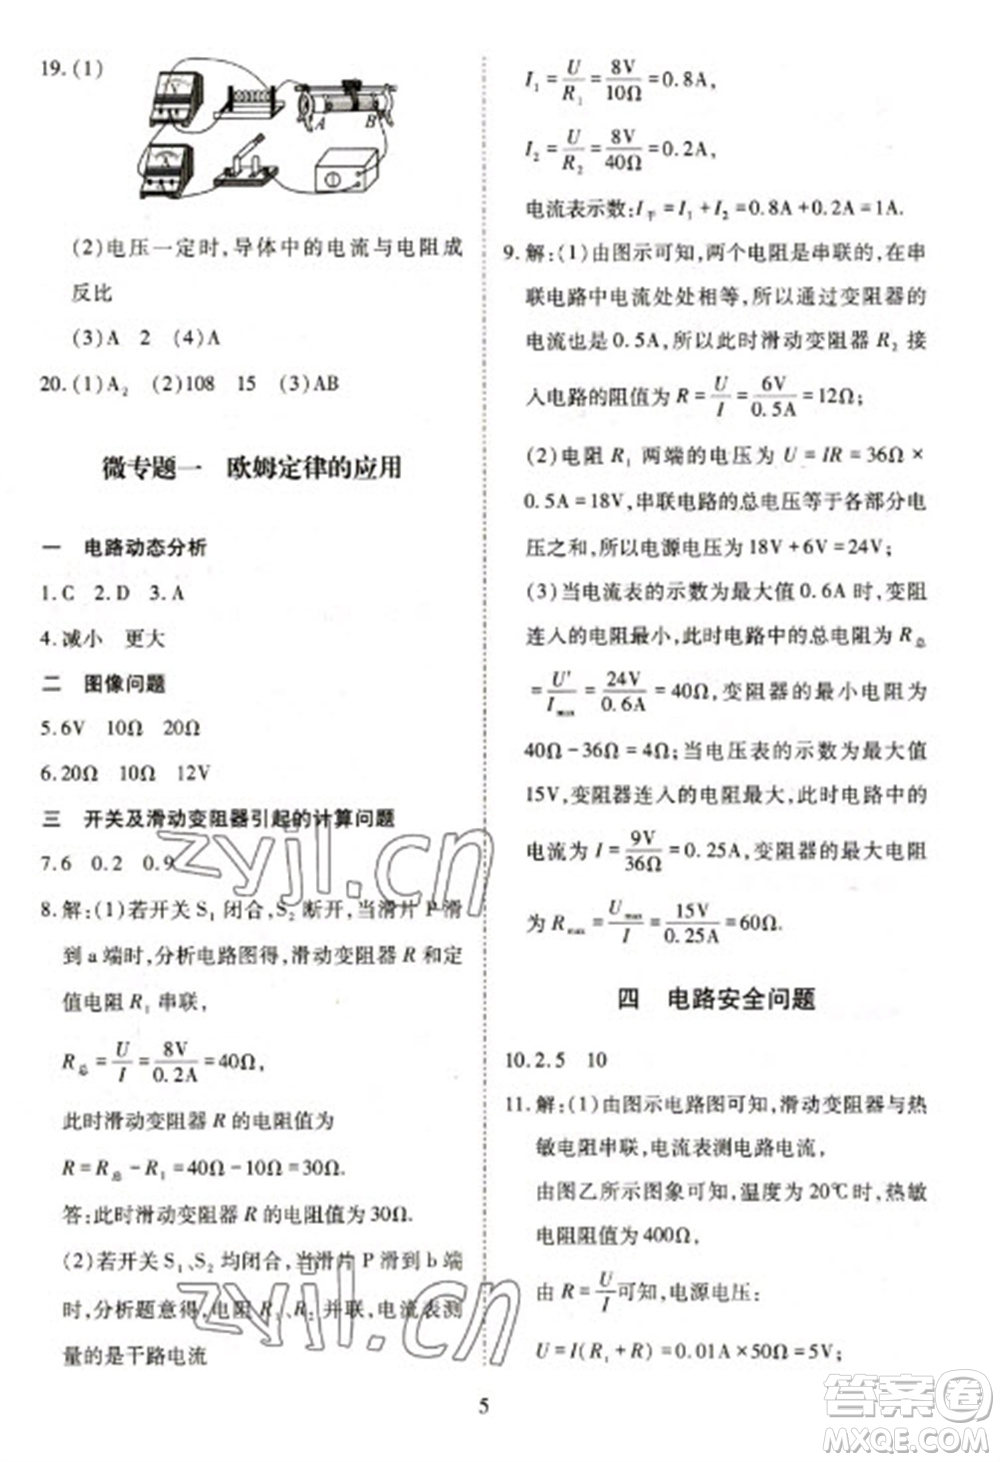 19.(1)
A B
(2)电压一定时,导体中的电流与电阻成
反比
(3)A 2 (4)A
20.(1)A₂ (2)108 15 (3)AB
微专题一 欧姆定律的应用
一 电路动态分析
1.C 2.D 3.A
4.减小 更大
二 图像问题
5.6V 10Ω 20Ω
6.20Ω 10Ω 12V
三 开关及滑动变阻器引起的计算问题
7.6 0.2 0.9
8.解:(1)若开关S₁闭合,S₂断开,当滑片P滑
到a端时,分析电路图得,滑动变阻器R和定
值电阻R₁串联,
R总=U/I=8V/0.2A=40Ω,
此时滑动变阻器R的电阻值为
R=R总-R₁=40Ω-10Ω=30Ω.
答:此时滑动变阻器R的电阻值为30Ω.
(2)若开关S₁、S₂均闭合,当滑片P滑到b端
时,分析题意得,电阻R₁、R₂并联,电流表测
量的是干路电流
I₁=U/R₁=8V/10Ω=0.8A,
I₂=U/R₂=8V/40Ω=0.2A,
电流表示数:I干=I₁+I₂=0.8A+0.2A=1A.
9.解:(1)由图示可知,两个电阻是串联的,在串
联电路中电流处处相等,所以通过变阻器的
电流也是0.5A,所以此时滑动变阻器R₂接
入电路的阻值为R=U/I=6V/0.5A=12Ω;
(2)电阻R₁两端的电压为U=IR=36Ω×
0.5A=18V,串联电路的总电压等于各部分电
压之和,所以电源电压为18V+6V=24V;
(3)当电流表的示数为最大值0.6A时,变阻
连入的电阻最小,此时电路中的总电阻为R总
=U'/Imax=24V/0.6A=40Ω,变阻器的最小电阻为
40Ω-36Ω=4Ω;当电压表的示数为最大值
15V,变阻器连入的电阻最大,此时电路中的
电流为I=9V/36Ω=0.25A,变阻器的最大电阻
为Rmax=Umax/I=15V/0.25A=60Ω.
四 电路安全问题
10.2.5 10
11.解:(1)由图示电路图可知,滑动变阻器与热
敏电阻串联,电流表测电路电流,
由图乙所示图象可知,温度为20℃时,热敏
电阻阻值为400Ω,
由R=U/I可知,电源电压:
U=I(R₁+R)=0.01A×50Ω=5V;
5
zyjl.cn
zyjl.cn
答案圈
MXQE.COM